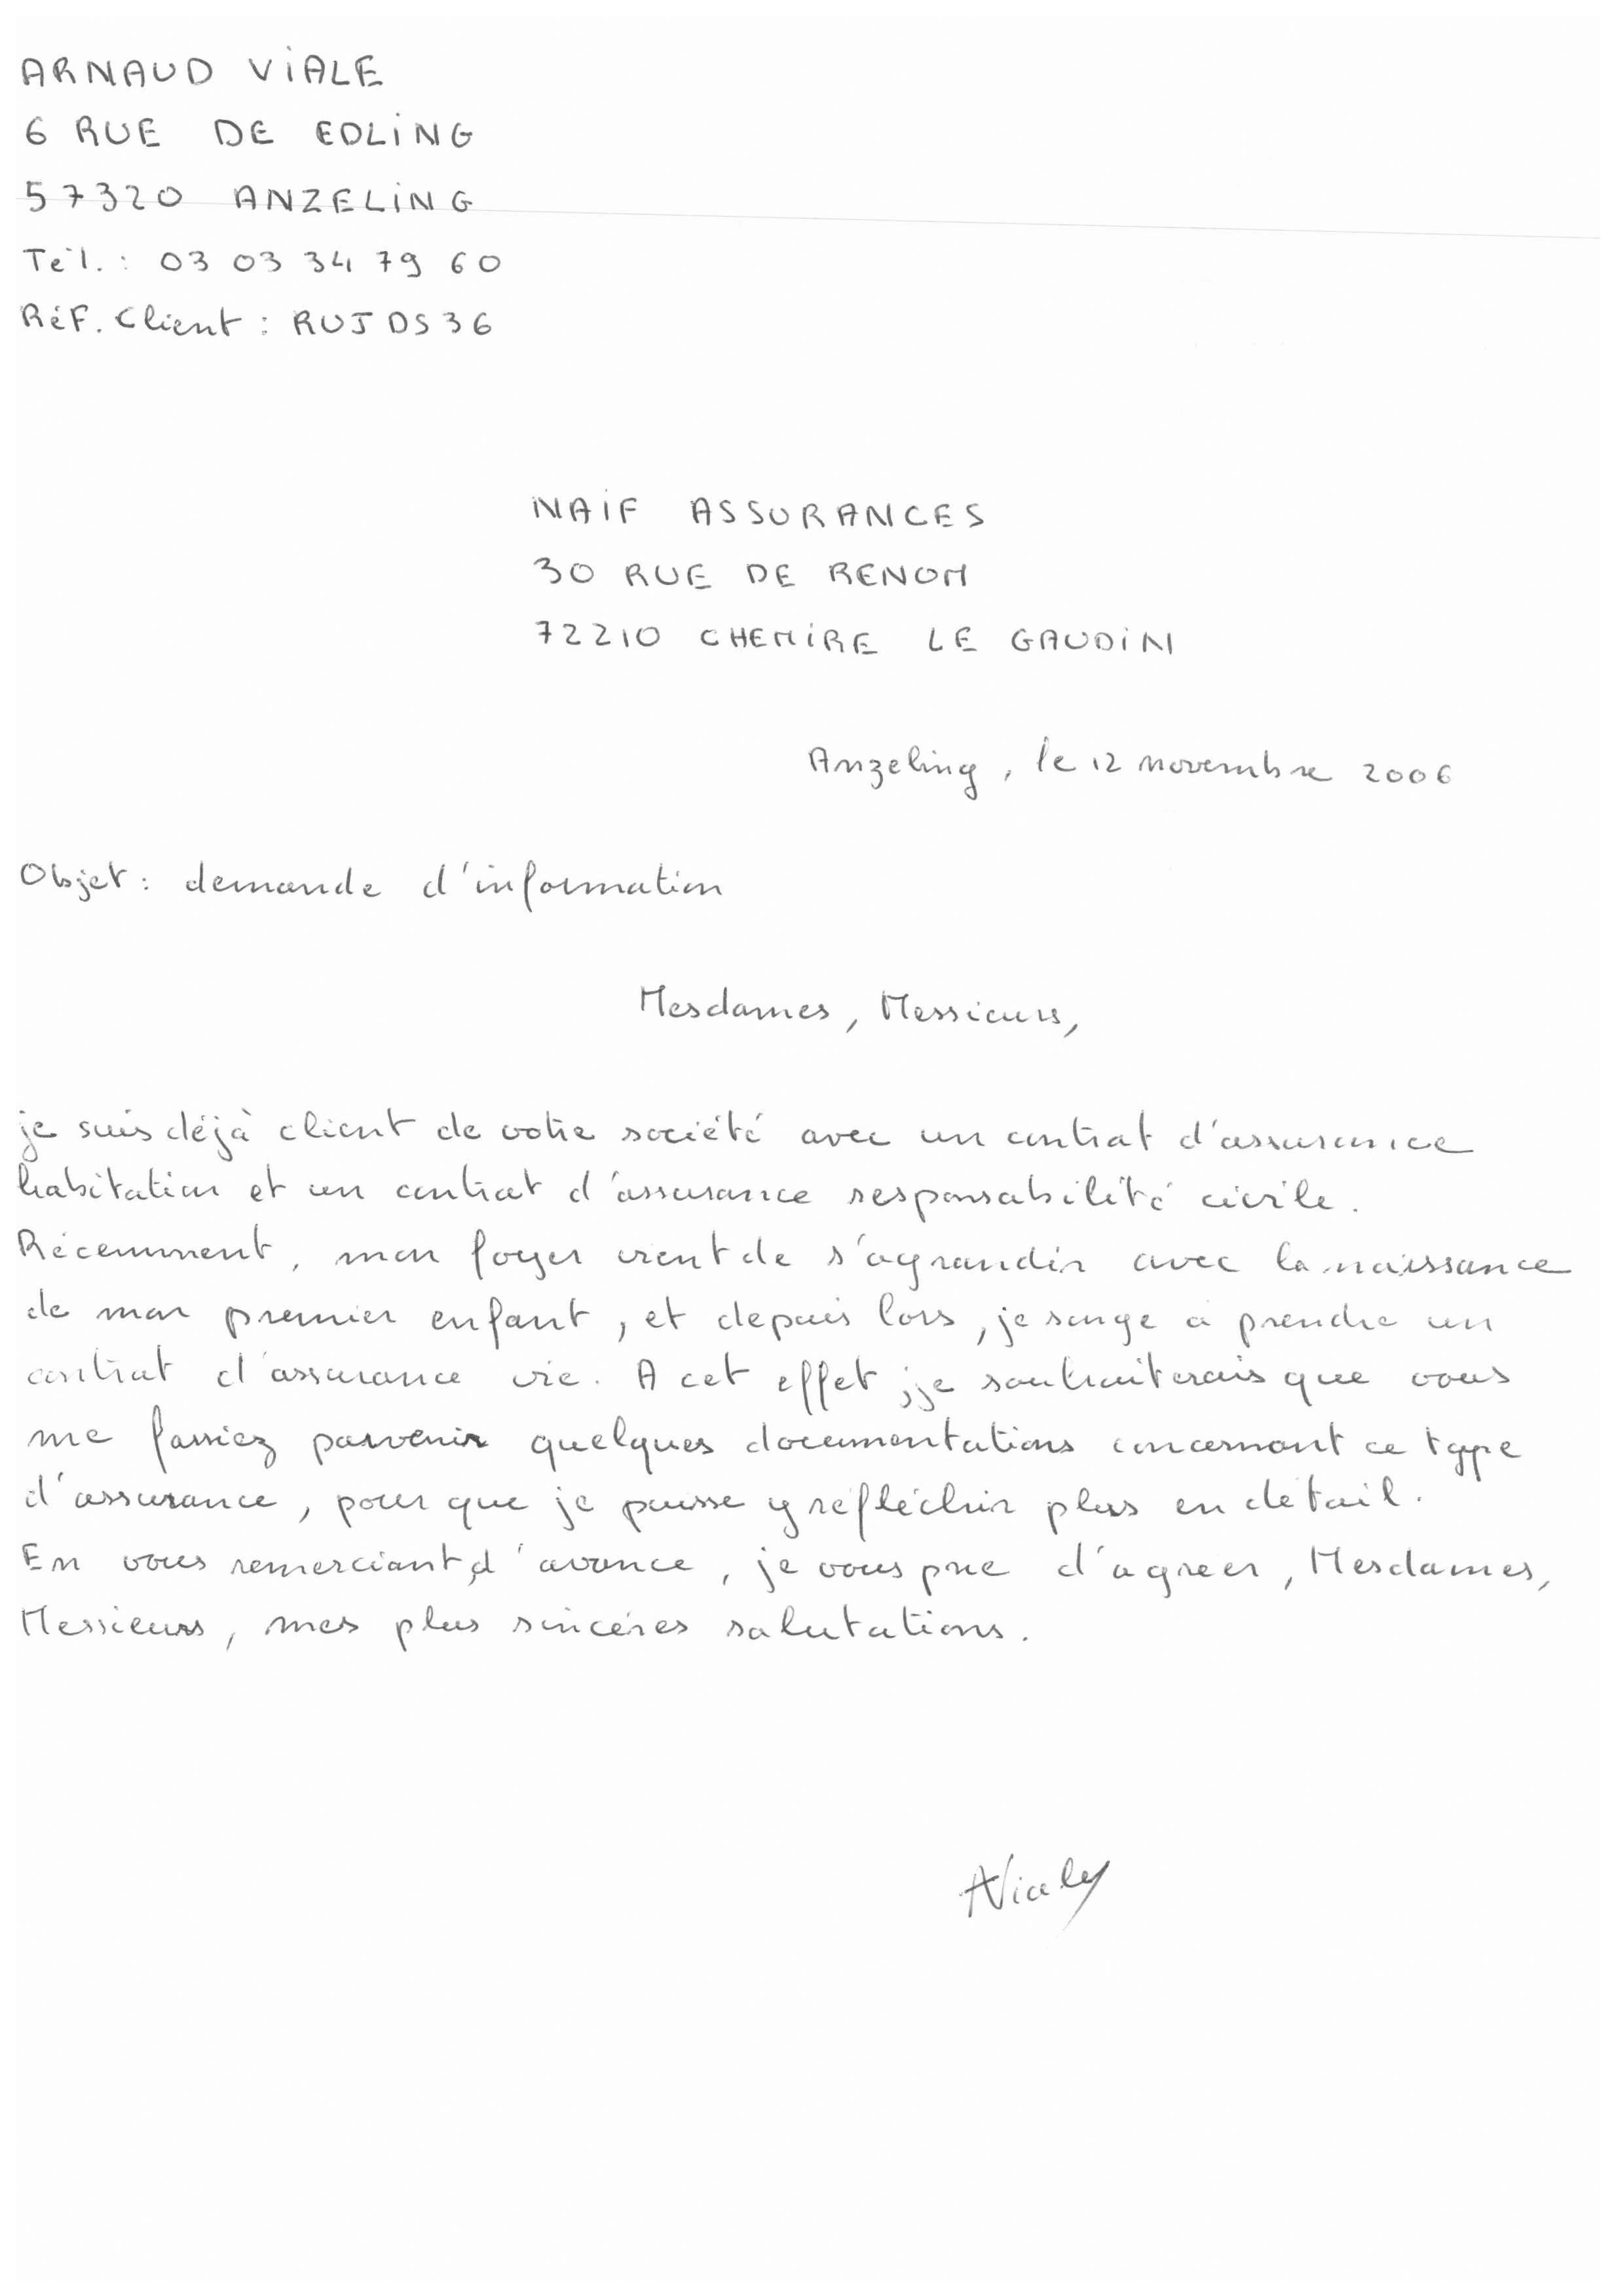 ARNAUD VIALE
6 RUE DE EDLING
57320 ANZELING
Tél. : 03 03 34 79 60
Réf. Client : RUJDS36
NAIF ASSURANCES
30 RUE DE RENOM
72210 CHEMIRE LE GAUDIN
Anzeling, le 12 novembre 2006
Objet : demande d'information
Mesdames, Messieurs,
je suis déjà client de votre société avec un contrat d'assurance
habitation et un contrat d'assurance responsabilité civile.
Récemment, mon foyer vient de s'agrandir avec la naissance
de mon premier enfant, et depuis lors, je songe à prendre un
contrat d'assurance vie. A cet effet, je souhaiterais que vous
me fassiez parvenir quelques documentations concernant ce type
d'assurance, pour que je puisse y réfléchir plus en détail.
En vous remerciant d'avance, je vous prie d'agréer, Mesdames,
Messieurs, mes plus sincères salutations.
AViale